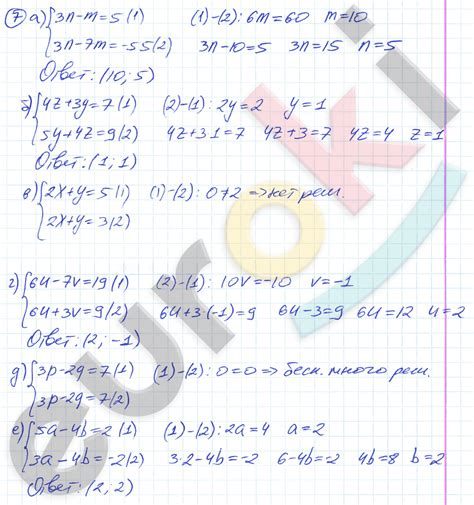 7 а) { 3n-m=5 (1) (1)-(2): 6m=60 m=10
3n-7m=-55(2) 3n-10=5 3n=15 n=5
Ответ: (10; 5)
б) { 4z+3y=7 (1) (2)-(1): 2y=2 y=1
5y+4z=9(2) 4z+3·1=7 4z+3=7 4z=4 z=1
Ответ: (1; 1)
в) { 2x+y=5 (1) (1)-(2): 0≠2 => нет реш.
2x+y=3(2)
г) { 6u-7v=19(1) (2)-(1): 10v=-10 v=-1
6u+3v=9(2) 6u+3·(-1)=9 6u-3=9 6u=12 u=2
Ответ: (2; -1)
д) { 3p-2q=7(1) (1)-(2): 0=0 => беск. много реш.
3p-2q=7(2)
е) { 5a-4b=2 (1) (1)-(2): 2a=4 a=2
3a-4b=-2(2) 3·2-4b=-2 6-4b=-2 4b=8 b=2
Ответ: (2; 2)
euroki